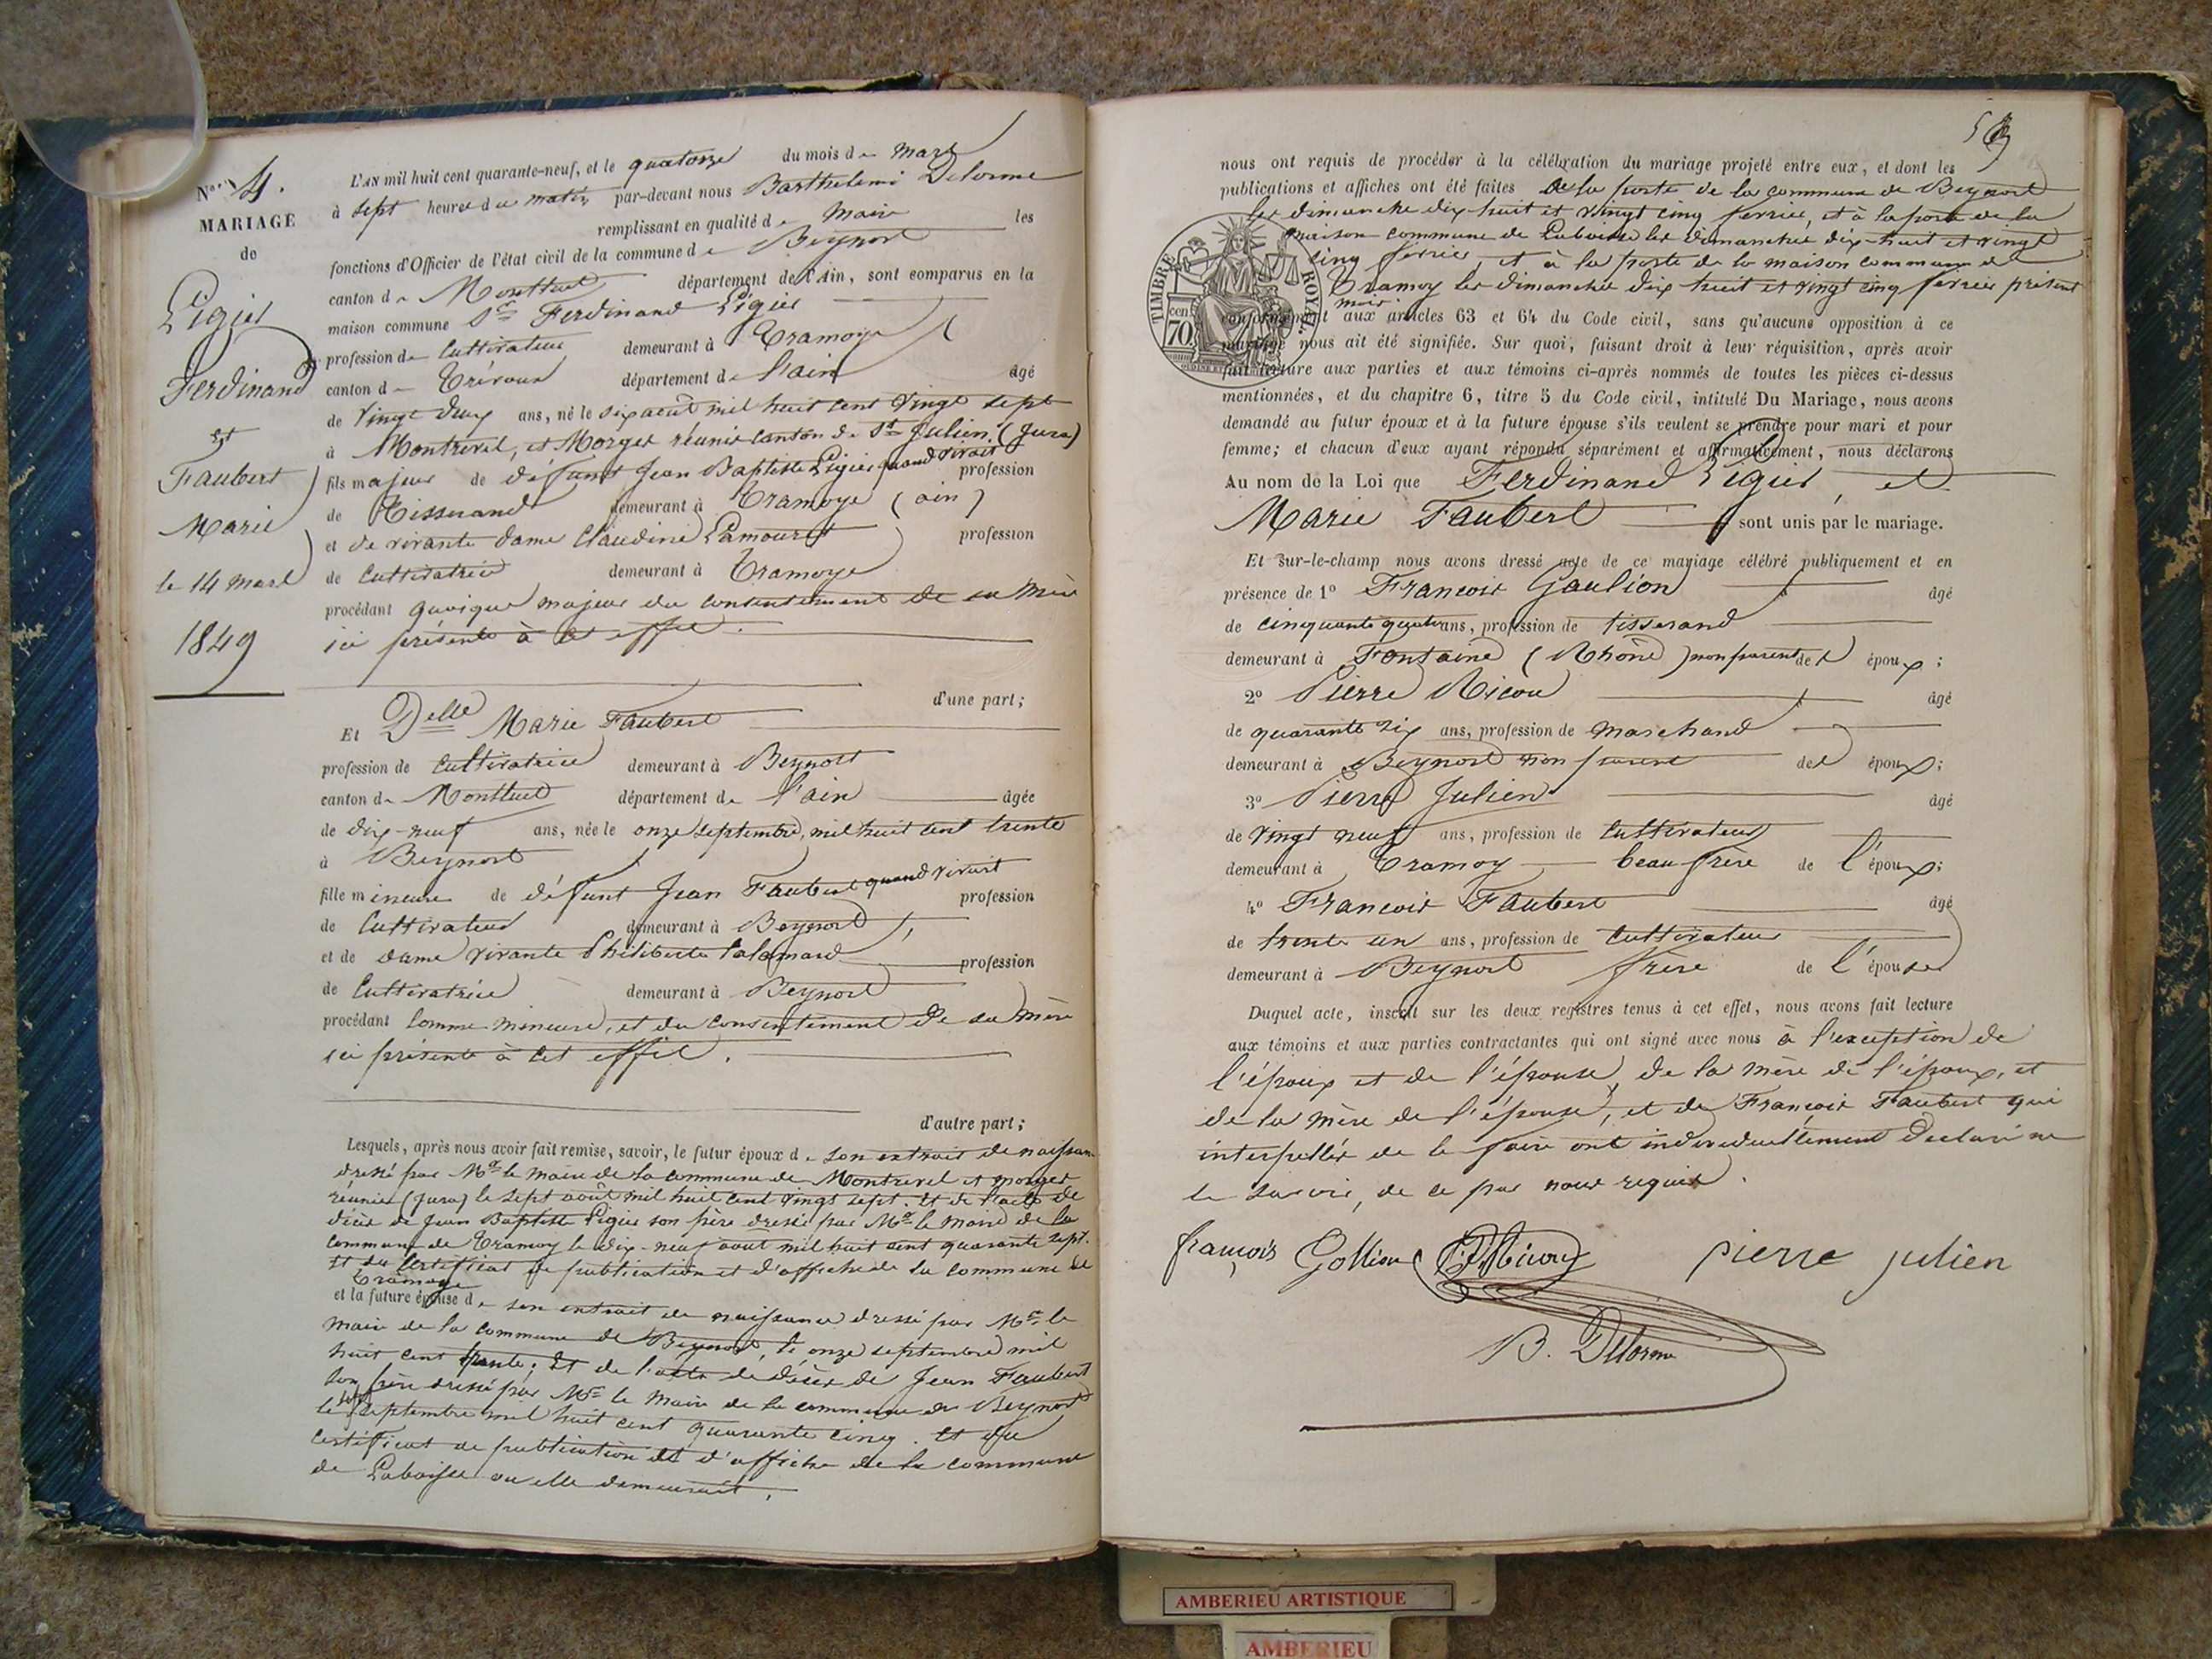 N.º 4.
MARIAGE
de
Ligier
Ferdinand
Et
Faubert
Marie
le 14 mars
1849
L'AN mil huit cent quarante-neuf, et le quatorze du mois de mars
à sept heures du matin par-devant nous Barthelemi Delorme
remplissant en qualité de Maire les
fonctions d'Officier de l'état civil de la commune de Beynost
canton de Montluel département de l'Ain, sont comparus en la
maison commune Sr Ferdinand Ligier
profession de Cultivateur demeurant à Tramoye
canton de Trévoux département de l'ain âgé
de Vingt deux ans, né le six aout mil huit cent Vingt sept
à Montrevel, et Morges réunis canton de St Julien. (Jura)
fils majeur de défunt Jean Baptiste Ligier quand vivait profession
de Tisserand demeurant à Tramoye (ain)
et de vivante dame Claudine Lamouret profession
de Cultivatrice demeurant à Tramoye
procédant quoique majeur du consentement de sa mère
ici présente à cet effet.
d'une part;
Et Delle Marie Faubert
profession de Cultivatrice demeurant à Beynost
canton de Montluel département de l'ain âgée
de dix-neuf ans, née le onze septembre, mil huit cent trente
à Beynost
fille mineure de défunt Jean Faubert quand vivait profession
de Cultivateur demeurant à Beynost
et de dame vivante Philiberte profession
de Cultivatrice demeurant à Beynost
procédant comme mineure, et du consentement de sa mère
ici présente à cet effet.
d'autre part;
Lesquels, après nous avoir fait remise, savoir, le futur époux de son extrait de naissance
dressé par Mr le maire de la commune de Montrevel et morges
réunis (Jura) le sept août mil huit cent vingt sept. Et de l'acte de
décès de Jean Baptiste Ligier son père dressé par Mr le maire de la
commune de Tramoy le dix-neuf aout mil huit cent quarante sept.
Et du Certificat de publication et d'affiche de la commune de
Tramoye
et la future épouse de son extrait de naissance dressé par Mr le
maire de la commune de Beynost, le onze septembre mil
huit cent trente; Et de l'acte de décès de Jean Faubert
son père dressé par Mr le Maire de la commune de Beynost
le septembre mil huit cent quarante cinq. Et du
certificat de publication et d'affiche de la commune
de Laboisse ou elle demeurait.
nous ont requis de procéder à la célébration du mariage projeté entre eux, et dont les
publications et affiches ont été faites à la porte de la commune de Beynost
les dimanche dix huit et vingt cinq ferrier, et à la porte de la
maison commune de Laboisse les dimanches dix-huit et vingt
cinq ferrier, et à la porte de la maison commune de
Tramoy les dimanches dix huit et vingt cinq ferrier présent
mois
TIMBRE ROYAL
70 cen.
conformément aux articles 63 et 64 du Code civil, sans qu'aucune opposition à ce
mariage nous ait été signifiée. Sur quoi, faisant droit à leur réquisition, après avoir
fait lecture aux parties et aux témoins ci-après nommés de toutes les pièces ci-dessus
mentionnées, et du chapitre 6, titre 5 du Code civil, intitulé Du Mariage, nous avons
demandé au futur époux et à la future épouse s'ils veulent se prendre pour mari et pour
femme; et chacun d'eux ayant répondu séparément et affirmativement, nous déclarons
Au nom de la Loi que Ferdinand Ligier et
Marie Faubert sont unis par le mariage.
Et sur-le-champ nous avons dressé acte de ce mariage célébré publiquement et en
présence de 1º François Gaulion âgé
de cinquante quatre ans, profession de tisserand
demeurant à Fontaine (Rhône) non parent de l époux;
2º Pierre Nicou âgé
de quarante six ans, profession de marchand
demeurant à Beynost non parent de l époux;
3º Pierre Julien âgé
de vingt neuf ans, profession de Cultivateur
demeurant à Tramoy beau frère de l'époux;
4º François Faubert âgé
de trente un ans, profession de Cultivateur
demeurant à Beynost frère de l'épouse
Duquel acte, inscrit sur les deux registres tenus à cet effet, nous avons fait lecture
aux témoins et aux parties contractantes qui ont signé avec nous à l'exception de
l'époux et de l'épouse, de la mère de l'époux, et
de la mère de l'épouse, et de François Faubert qui
interpellés de le faire ont individuellement déclaré ne
le savoir, de ce par nous requis.
françois Gollion pierre julien
B. Delorme
AMBERIEU ARTISTIQUE
AMBERIEU